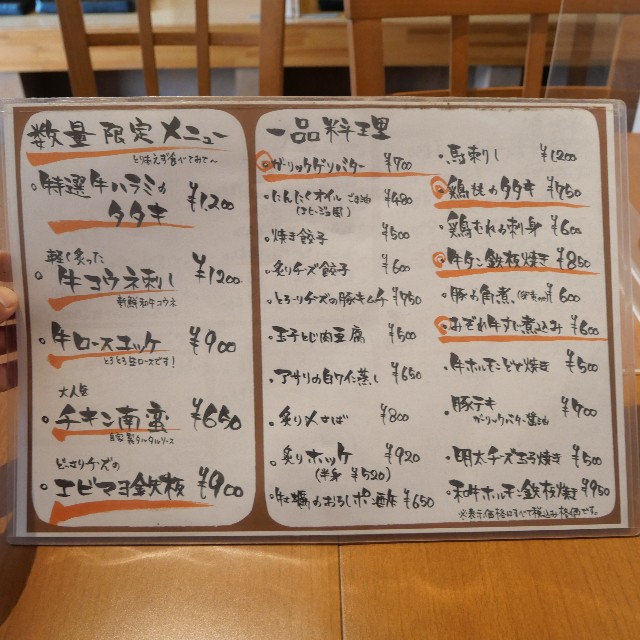 数量限定メニュー
とりあえず食べてみて～
・特選牛ハラミの
タタキ ¥1,200
軽く炙った
・牛コウネ刺し ¥1,200
新鮮和牛コウネ
・牛ロースユッケ ¥900
とろとろ生ロースです!
大人気
・チキン南蛮 ¥650
自家製タルタルソース
どっさりチーズの
・エビマヨ鉄板 ¥900
一品料理
・ガーリックゲソバター ¥700
・にんにくオイル ごま油 ¥480
・焼き餃子 ¥500
・炙りチーズ餃子 ¥600
・とろ～りチーズの豚キムチ ¥750
・玉子とじ肉豆腐 ¥500
・アサリの白ワイン蒸し ¥650
・炙り〆さば ¥800
・炙りホッケ ¥920
(半身 ¥520)
・牡蠣のおろしポン酢 ¥650
・馬刺し ¥1200
・鶏ももタタキ ¥750
・鶏むねの刺身 ¥600
・牛タン鉄板焼き ¥850
・豚の角煮 ¥600
・みぞれ牛すじ煮込み ¥600
・牛ホルモン焼き ¥500
・豚テキ ¥700
ガーリックバター醤油
・明太チーズ玉子焼き ¥500
・和牛ホルモン鉄板焼き ¥950
※表示価格はすべて税込み価格です。